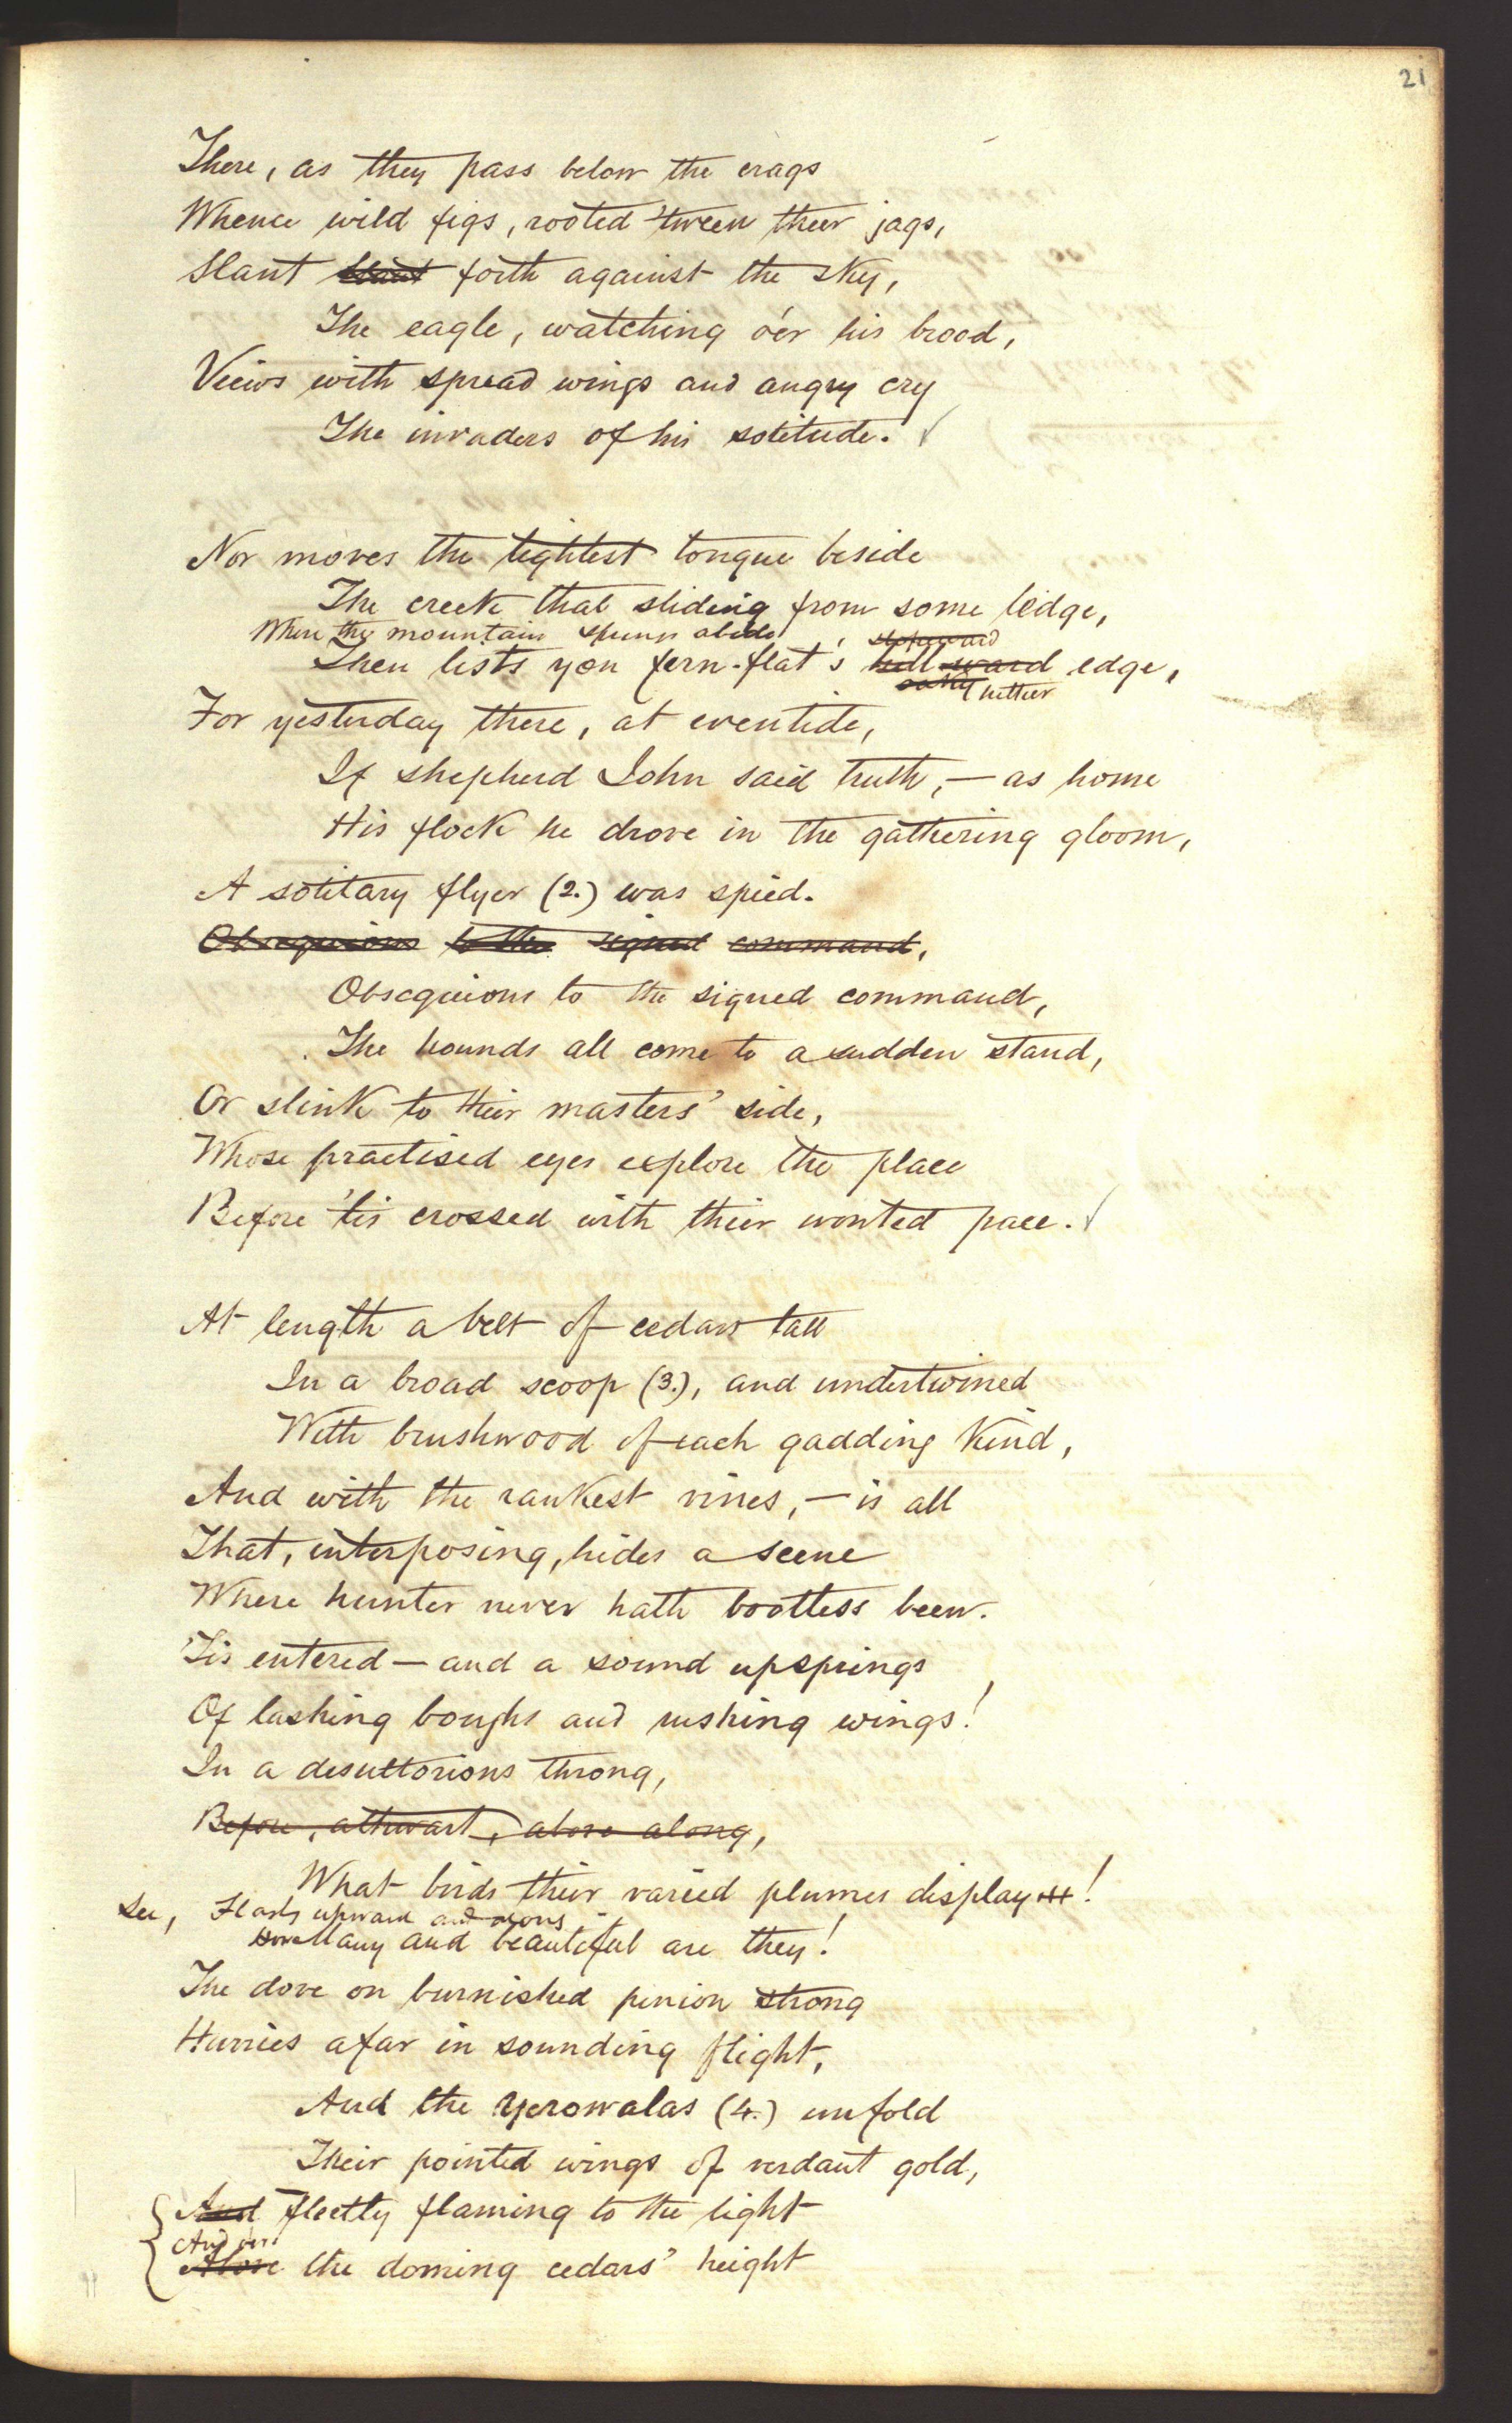 21
There, as they pass below the crags
Whence wild figs, rooted 'tween their jags,
Slant slant forth against the sky,
The eagle, watching o'er his brood,
Views with spread wings and angry cry
The invaders of his solitude.
Nor moves the lightest tongue beside
The creek that sliding from some ledge,
When the mountain abide slopeward
Then lists yon fern-flat's hill-ward edge,
hither
For yesterday there, at eventide,
If shepherd John said truth,—as home
His flock he drove in the gathering gloom,
A solitary flyer (2.) was spied.
Obsequious to the signed command,
Obsequious to the signed command,
The hounds all come to a sudden stand,
Or slink to their masters' side,
Whose practised eyes explore the place
Before 'tis crossed with their wonted pace.
At length a belt of cedars tall
In a broad scoop (3.), and undertwined
With brushwood of each gadding kind,
And with the rankest vines,—is all
That, interposing, hides a scene
Where hunter never hath bootless been.
'Tis entered—and a sound upsprings
Of lashing boughs and rushing wings!
In a desultorious throng,
Before, athwart, above along,
What birds their varied plumes display!
See, Flash upward and along
How Many and beautiful are they!
The dove on burnished pinion strong
Hurries afar in sounding flight,
And the yerowalas (4.) unfold
Their pointed wings of verdant gold,
And fleetly flaming to the light
And o'er
Above the doming cedars' height